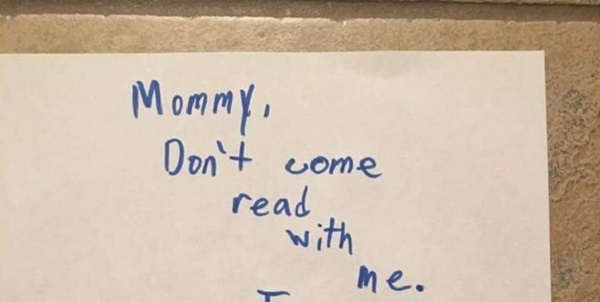 Mommy,
Don't come
read
with
me.